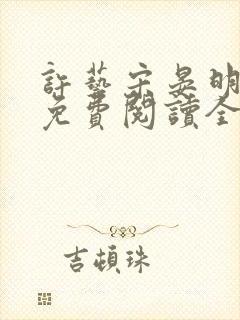 許藝宋晏明
免費閱讀全
吉頓珠